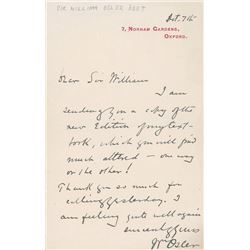 SIR WILLIAM OSLER BART
Oct. 7th
7, NORHAM GARDENS,
OXFORD.
Dear Sir William
I am
sending you a copy of the
new Edition of my text-
book, which you will find
much altered – one way
or the other!
Thank you so much for
calling yesterday. I
am feeling quite well again
Sincerely yours
Wm Osler